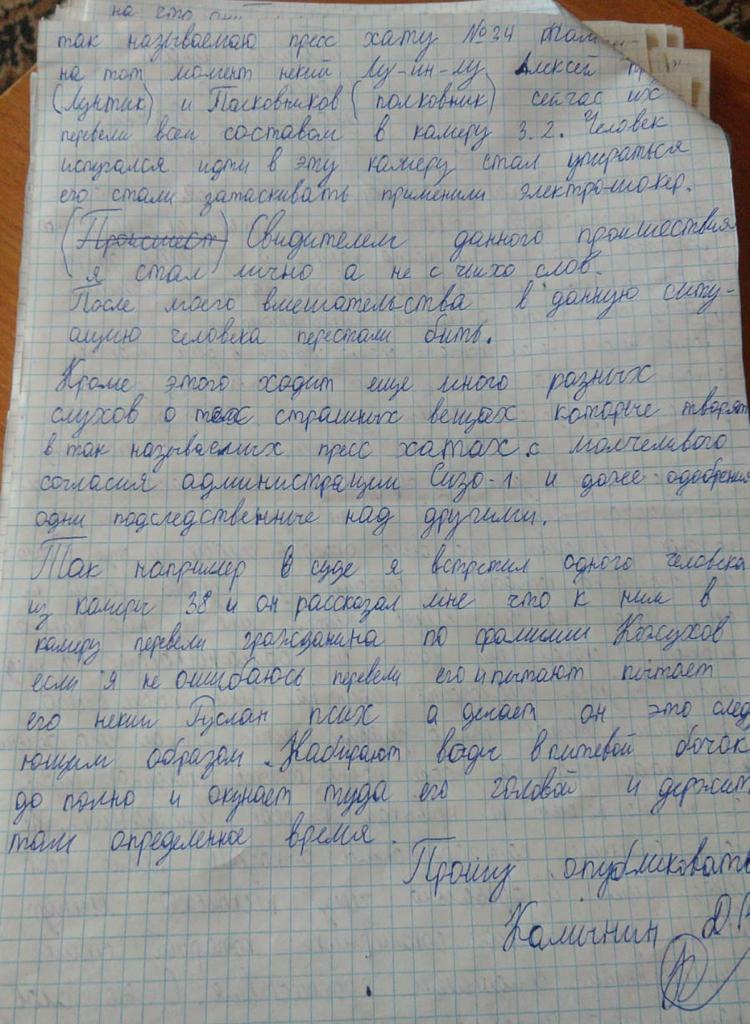 на что
так называемаю пресс хату №34 там
на тот момент некий Лу-ин-лу Алексей
(Лунтик) и Полковников (полковник) сейчас их
перевели всем составом в камеру 3.2. Человек
испугался идти в эту камеру стал упираться
его стали затаскивать применили электрошокер.
(Происшест) Свидетелем данного проишествия
я стал лично а не с чьихо слов.
После моего вмешательства в данную ситу-
ацию человека перестали бить.
Кроме этого ходит еще много разных
слухов о тех страшных вещах которые творят
в так называемых пресс хатах с молчеливого
согласия администрации Сизо-1 и даже одобрения
одни подследственные над другими.
Так например в суде я встретил одного человека
из камеры 38 и он рассказал мне что к ним в
камеру перевели гражданина по фамилии
если я не ошибаюсь перевели его и пытают пытает
его некий Руслан псих а делает он это след
ющим образом. Набирают воды в питевой бочок
до полно и окунает туда его головой и держит
там определенное время.
Прошу опубликовать
Каличнин Д.В